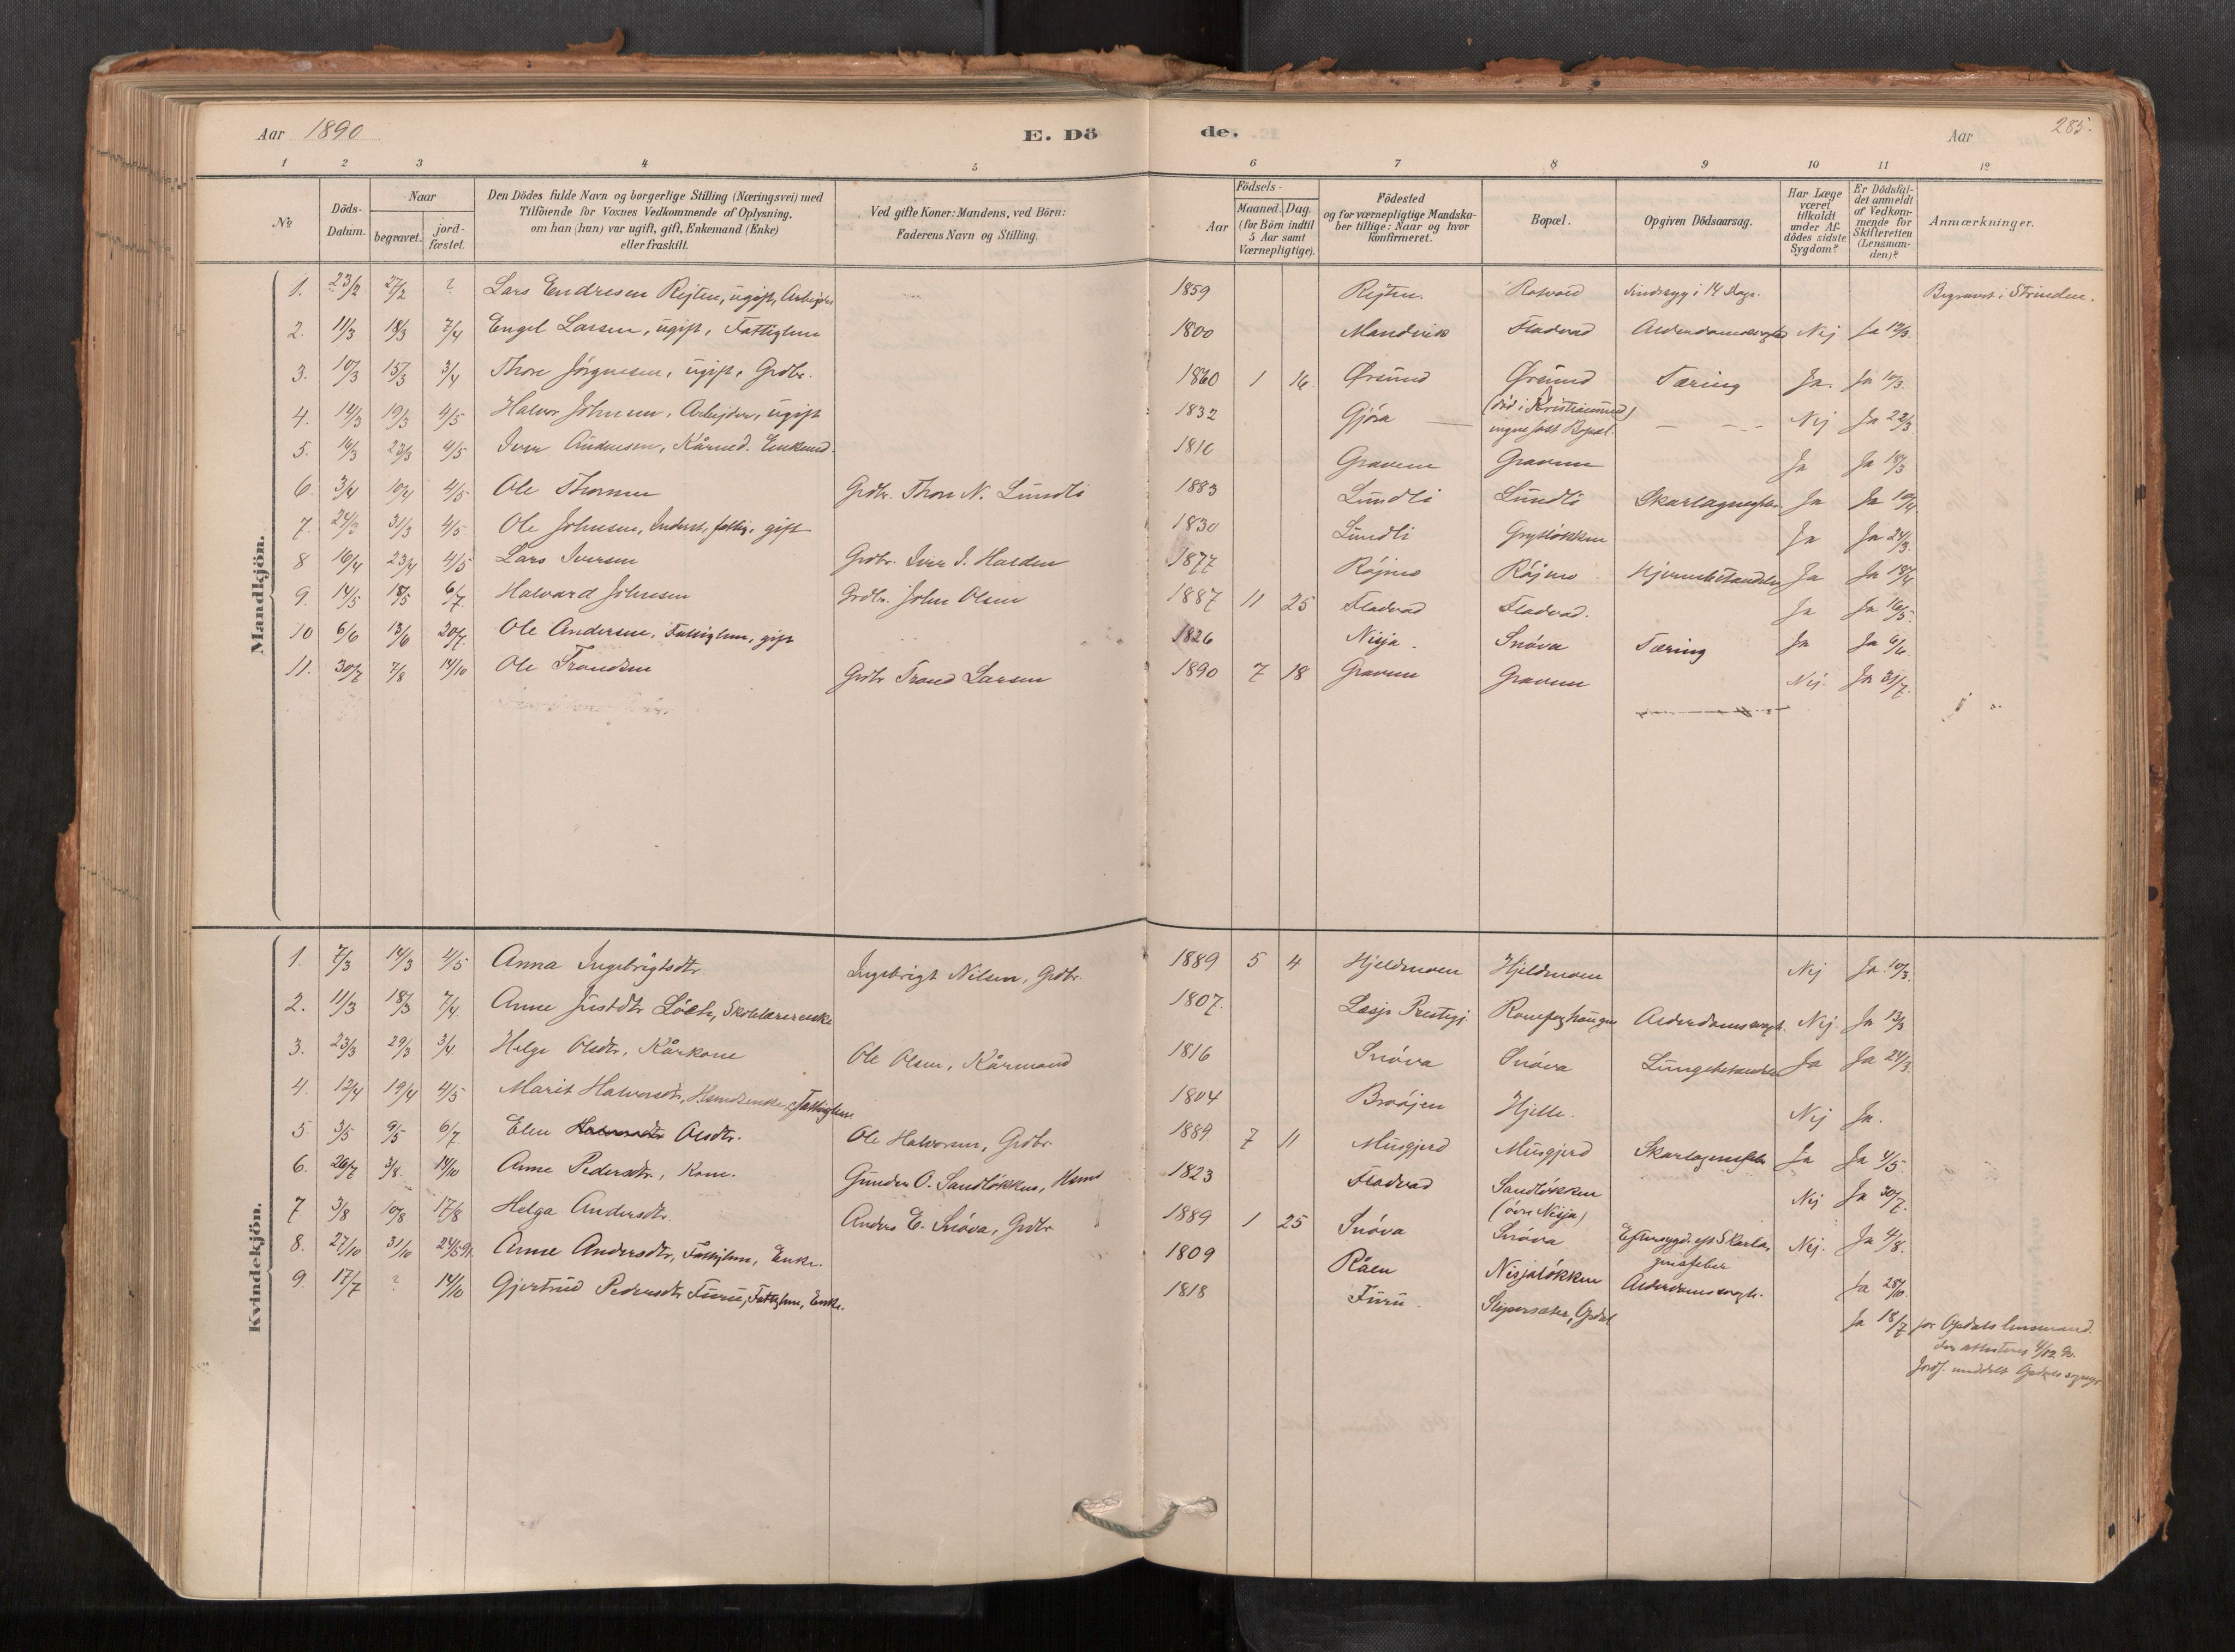 Aar 1890 E. Dö de. Aar 285.
1 2 3 4 5 6 7 8 9 10 11 12
No Döds-Datum. Naar begravet. jord-fæstet. Den Dödes fulde Navn og borgerlige Stilling (Næringsvei) med Tilföiende for Voxnes Vedkommende af Oplysning, om han (hun) var ugift, gift, Enkemand (Enke) eller fraskilt. Ved gifte Koner: Mandens, ved Börn: Faderens Navn og Stilling. Födsels- Aar Maaned. Dag. (for Börn indtil 5 Aar samt Værnepligtige). Födested og for værnepligtige Mandskaber tillige: Naar og hvor konfirmeret. Bopæl. Opgiven Dödsaarsag. Har Læge været tilkaldt under Afdödes sidste Sygdom? Er Dödsfaldet anmeldt af Vedkommende for Skifteretten (Lensmanden)? Anmærkninger.
Mandkjön.
1. 23/2 27/2 ? Lars Endresen Rejten, ugift, Arbejder 1859 Rejten. Rotvold Sindssyg i 14 Dage. Begravet i Strinden.
2. 11/3 18/3 7/4 Engel Larsen, ugift, Fattiglem 1800 Mandvik Fladvad Alderdomssvaghed Nej Ja 12/3.
3. 10/3 15/3 3/4 Thore Jörgensen, ugift, Grdbr. 1860 1 16 Ørsund Ørsund Tæring Ja. Ja 10/3.
4. 12/3 19/3 4/5 Halvor Johnsen, Arbejder, ugift 1832 Gjöra (död i Kristiansund) ingen fast Bopæl. — — Nej Ja 22/3
5. 16/3 23/3 4/5 Iver Andresen, Kårmd. Enkemd. 1810 Gravem Gravem Ja Ja 18/3
6. 3/4 10/4 4/5 Ole Thoresen Grdbr. Thore N. Lundli 1883 Lundli Lundli Skarlagensfeber Ja Ja 10/4
7. 24/3 31/3 4/5. Ole Johnsen, Inderst, fattig, gift 1830 Lundli Grytløkken Ja Ja 24/3.
8 16/4 23/4 4/5 Lars Iversen Grdbr. Iver I. Halden 1877 Röjmo Röjmo Hjernebetændelse Ja Ja 18/4
9. 14/5 18/5 6/7 Halvard Johnsen Grdbr. John Olsen 1887 11 25 Fladvad Fladvad. Ja Ja 16/5.
10 6/6 13/6 20/7. Ole Andersen, Fattiglem, gift 1826 Nisja. Snöva Tæring Ja Ja 6/6
11. 30/7 7/8 14/10 Ole Trondsen Grdbr Trond Larsen 1890 7 18 Gravem Gravem Nej. Ja 31/7.
Kvindekjön.
1. 7/3 14/3 4/5 Anna Ingebrigtsdtr. Ingebrigt Nilsen, Grdbr. 1889 5 4 Hjeldmoen Hjeldmoen Nej Ja 10/3.
2. 11/3 18/3 7/4. Anne Justdtr Löch, Skolelærerenke 1807. Lesje Prestegj. Romfoghaugen Alderdomssvagh. Nej. Ja 13/3
3. 23/3 29/3 3/4 Helge Olsdtr, Kårkone Ole Olsen, Kårmand 1816 Snöva Snöva Lungebetændelse Ja Ja 24/3.
4. 12/4 19/4 4/5 Marit Halvorsdtr, Husmdsenke, Fattiglem 1804 Hjelle. Nej Ja.
5 3/5 9/5 6/7 Elen Olsdtr. Ole Halvorsen, Grdbr. 1889. 7 11 Musgjerd Musgjerd Skarlagensfeber Ja Ja 4/5.
6. 26/7 3/8. 14/10 Anne Pedersdtr., Kone. Gunder O. Sandløkken, Husmd 1823 Fladvad Sandløkken (övre Nisja) Nej Ja 30/7.
7. 3/8 10/8 17/8 Helga Andersdtr. Anders E. Snöva, Grdbr. 1889 1 25 Snöva Snöva Eftersygd. eft Skarlagensfeber Nej. Ja 4/8.
8. 27/10 31/10 24/5 91. Anne Andersdtr, Fattiglem, Enke. 1809 Råen Nisjaløkken Alderdomssvagh. Ja 28/10.
9. 17/7 ? 14/10 Gjertrud Pedersdtr Furu, Fattiglem, Enke. 1818 Furu. Opdal Ja 18/7 for Opdals lensmand.
der attesteres 4/12 90.
Jordf. meddelt Opdals sognepr.